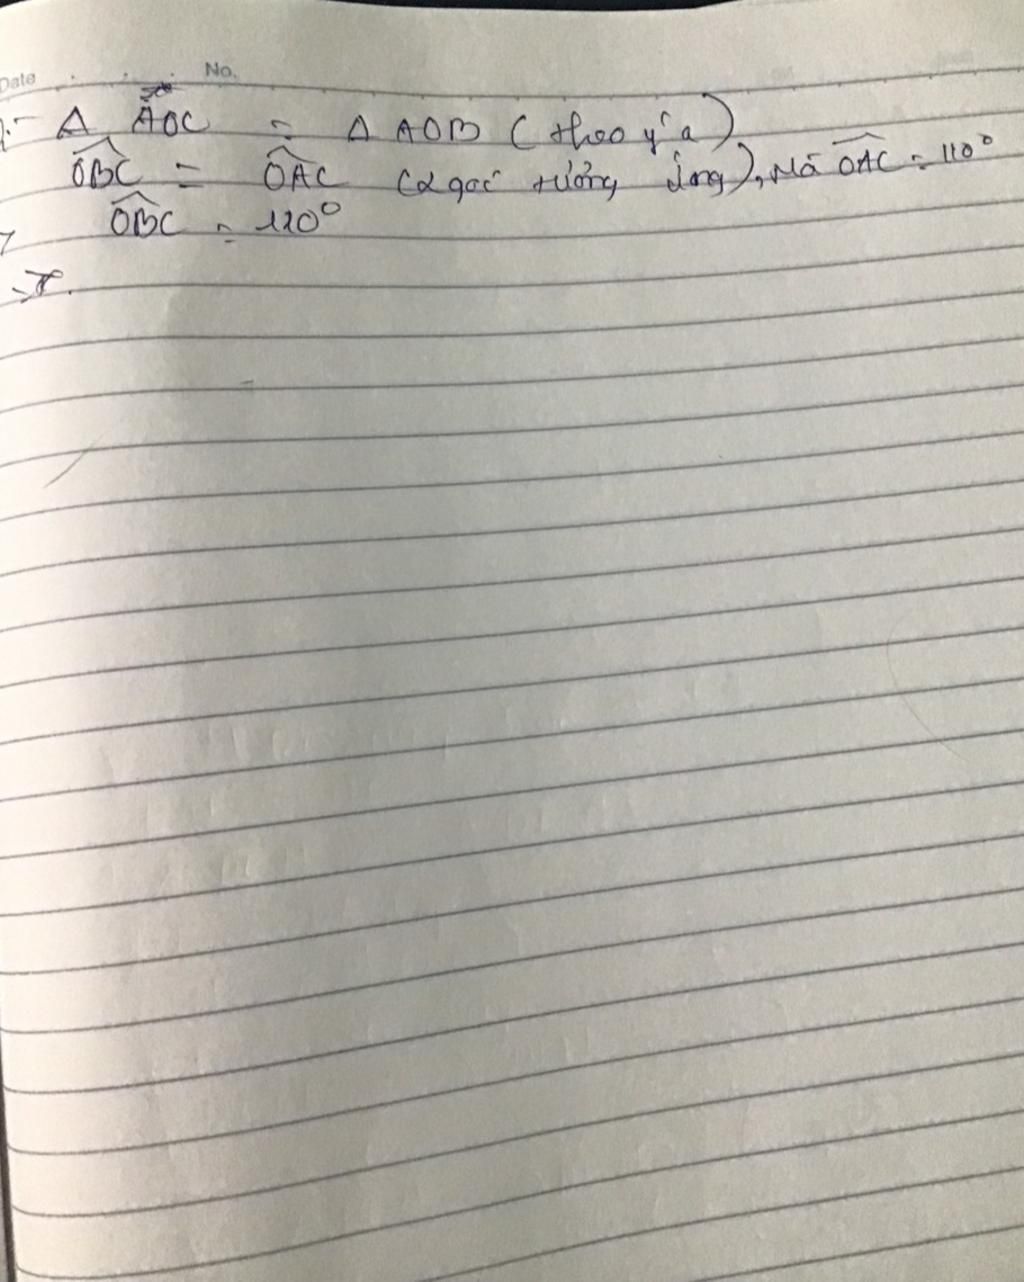 Date No.
Δ AOC = Δ AOB (theo ý a)
OBC = OAC (2 góc tương ứng), Mà OAC = 110°
OBC = 110°